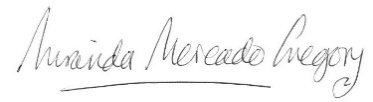 Miranda Mercado Gregory